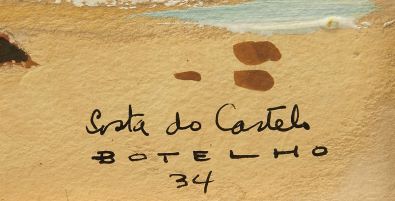 Costa do Castelo
BOTELHO
34